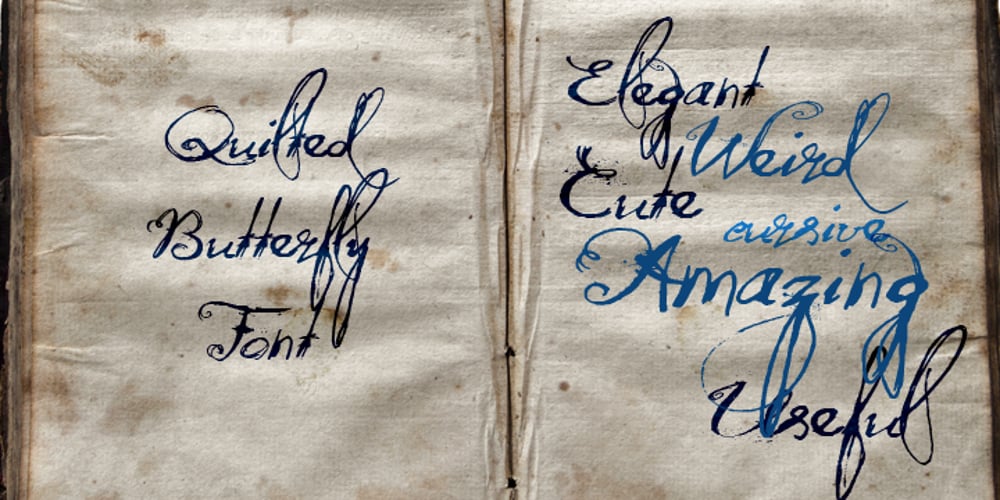 Quilted
Butterfly
Font
Elegant
Weird
Cute
cursive
Amazing
Useful